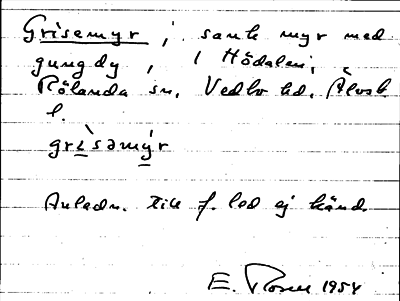 Grisemyr, sank myr med
gungdy, i Hödalen,
Rölanda sn, Vedbo hd, Älvsb
l.
grìsəmýr
Anledn. till f. led ej känd.
E. 1954